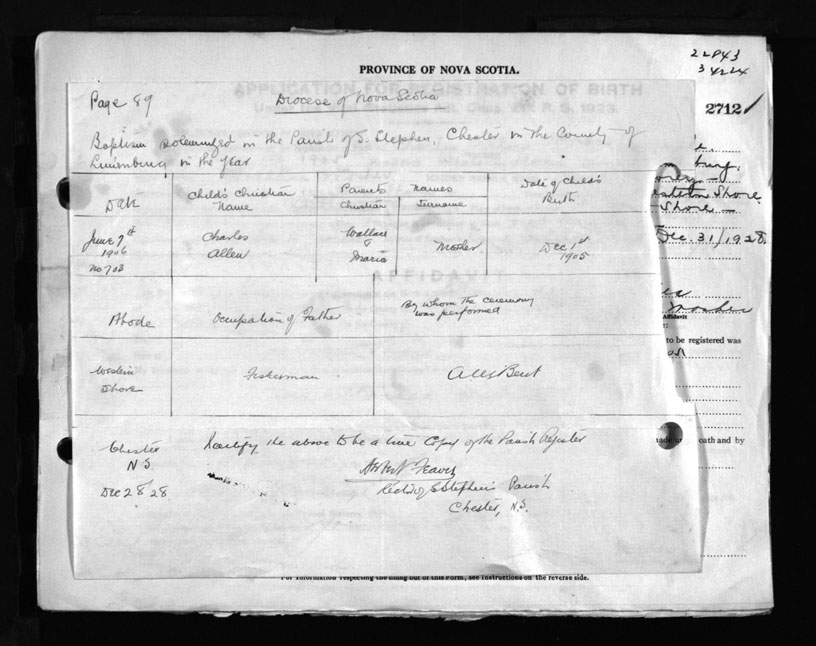 PROVINCE OF NOVA SCOTIA.
2712
Page 89
Diocese of Nova Scotia
APPLICATION FOR REGISTRATION OF BIRTH
Baptism solemnized in the Parish of S. Stephen, Chester in the County of
Lunenburg in the Year
Date
Child's Christian
Name
Parents Names
Christian
Surname
Date of Child's
Birth
June 7th
1906
No 703
Charles
Allen
Wallace
&
Maria
Mosher
Dec 1st
1905
AFFIDAVIT
Abode
Occupation of Father
By whom the ceremony
was performed
Western
Shore
Fisherman
Bent
Chester
N.S.
Dec 28 28
I certify the above to be a true Copy of the Parish Register
Rector of S. Stephen's Parish
Chester, N.S.
Shore
Shore
Dec. 31/1928
Mosher
Affidavit
to be registered was
oath and by
For information respecting the filling out of this Form, see instructions on the reverse side.